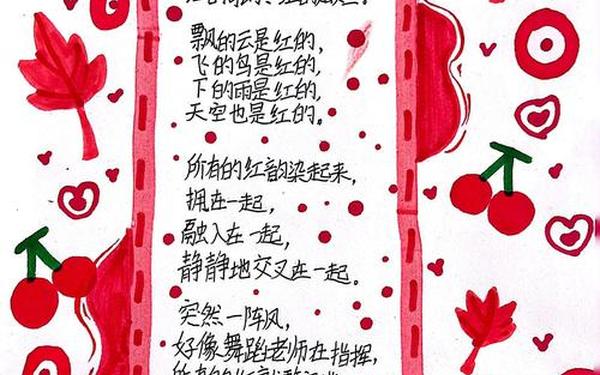 飘的云是红的,
飞的鸟是红的,
下的雨是红的,
天空也是红的。
所有的红韵染起来,
拥在一起,
融入在一起,
静静地交叉在一起。
突然一阵风,
好像舞蹈老师在指挥,